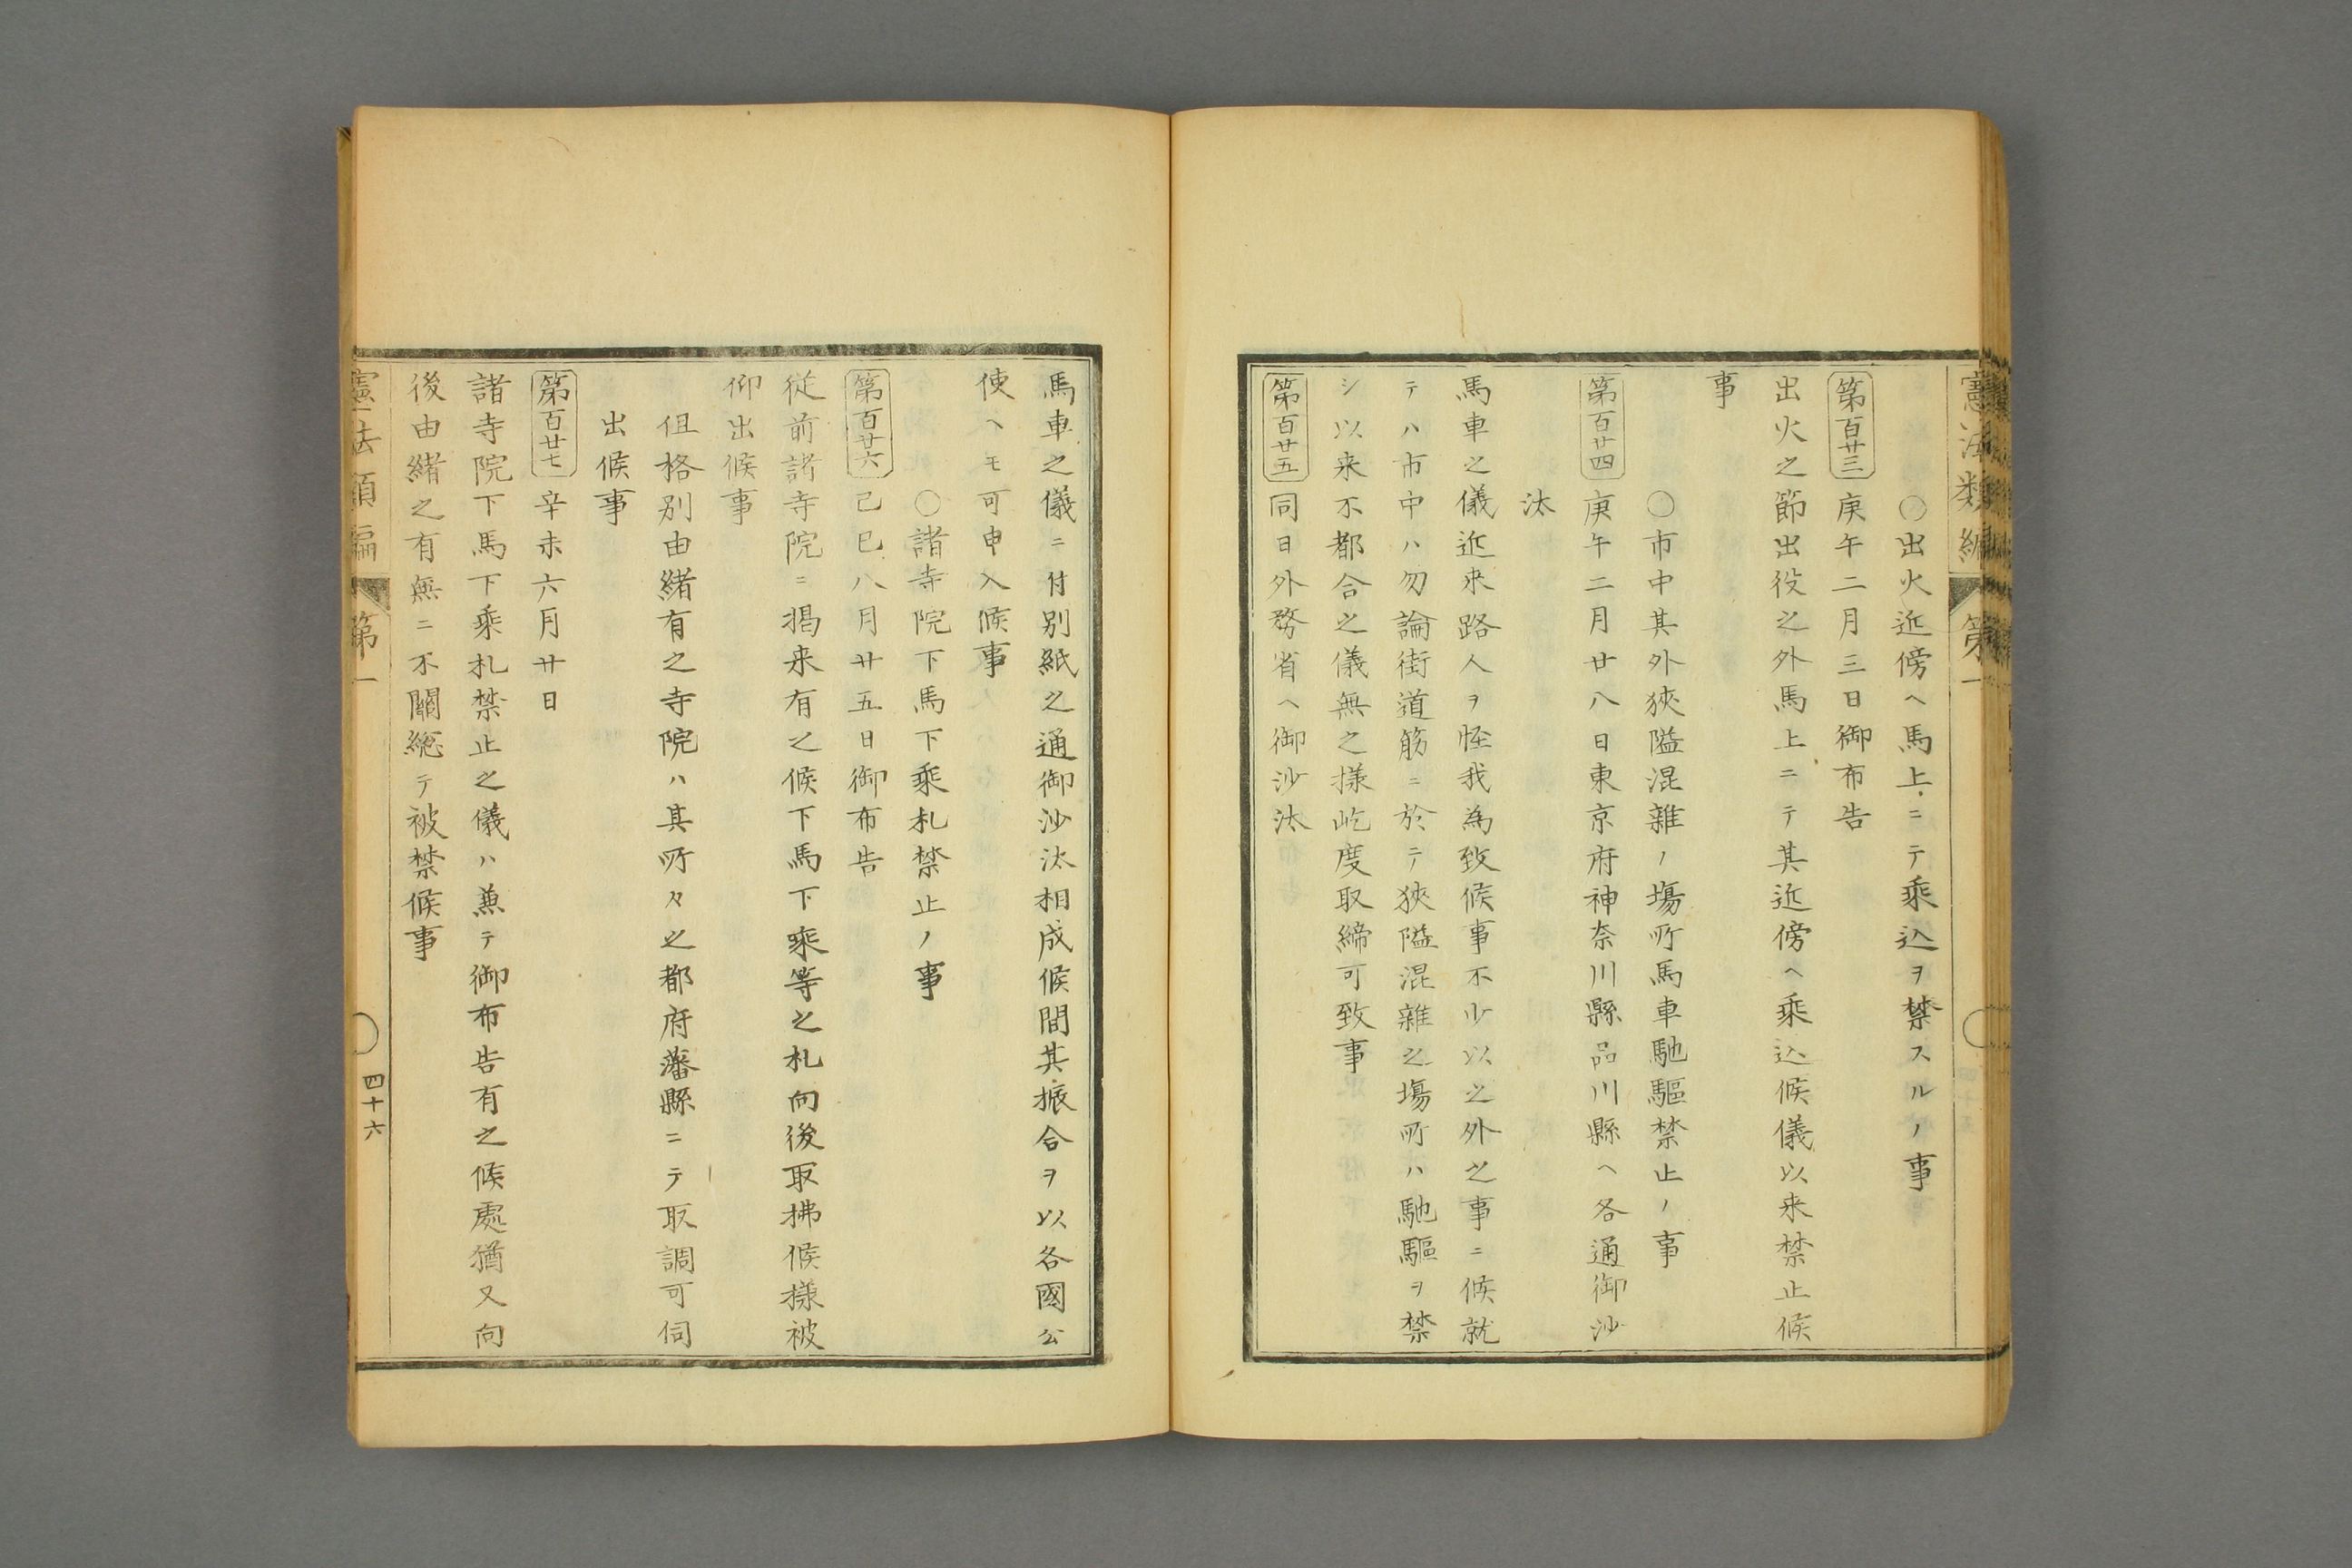 憲法類編 第一
○出火近傍ヘ馬上ニテ乘込ヲ禁スルノ事
第百廿三 庚午二月三日御布告
出火之節出役之外馬上ニテ其近傍ヘ乘込候儀以来禁止候
事
○市中其外狹隘混雜ノ塲所馬車馳驅禁止ノ事
第百廿四 庚午二月廿八日東京府神奈川縣品川縣ヘ各通御沙
汰
馬車之儀近来路人ヲ怪我為致候事不少以之外之事ニ候就
テハ市中ハ勿論街道筋ニ於テ狹隘混雜之塲所ハ馳驅ヲ禁
シ以来不都合之儀無之様屹度取締可致事
第百廿五 同日外務省ヘ御沙汰
馬車之儀ニ付別紙之通御沙汰相成候間其振合ヲ以各國公
使ヘモ可申入候事
○諸寺院下馬下乘札禁止ノ事
第百廿六 己巳八月廿五日御布告
従前諸寺院ニ揭来有之候下馬下乘等之札向後取拂候様被
仰出候事
但格別由緒有之寺院ハ其所々之都府藩縣ニテ取調可伺
出候事
第百廿七 辛未六月廿日
諸寺院下馬下乘札禁止之儀ハ兼テ御布告有之候處猶又向
後由緒之有無ニ不關総テ被禁候事
憲法類編 第一 四十六